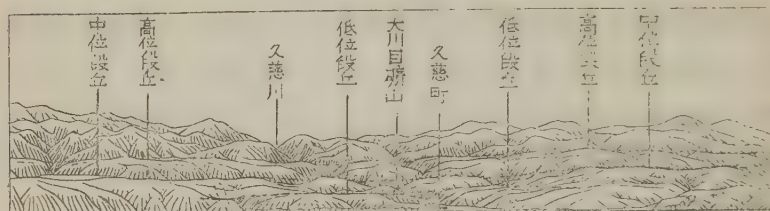 中位段丘
高位段丘
久慈川
低位段丘
大川目礦山
久慈町
低位段丘
高位段丘
中位段丘